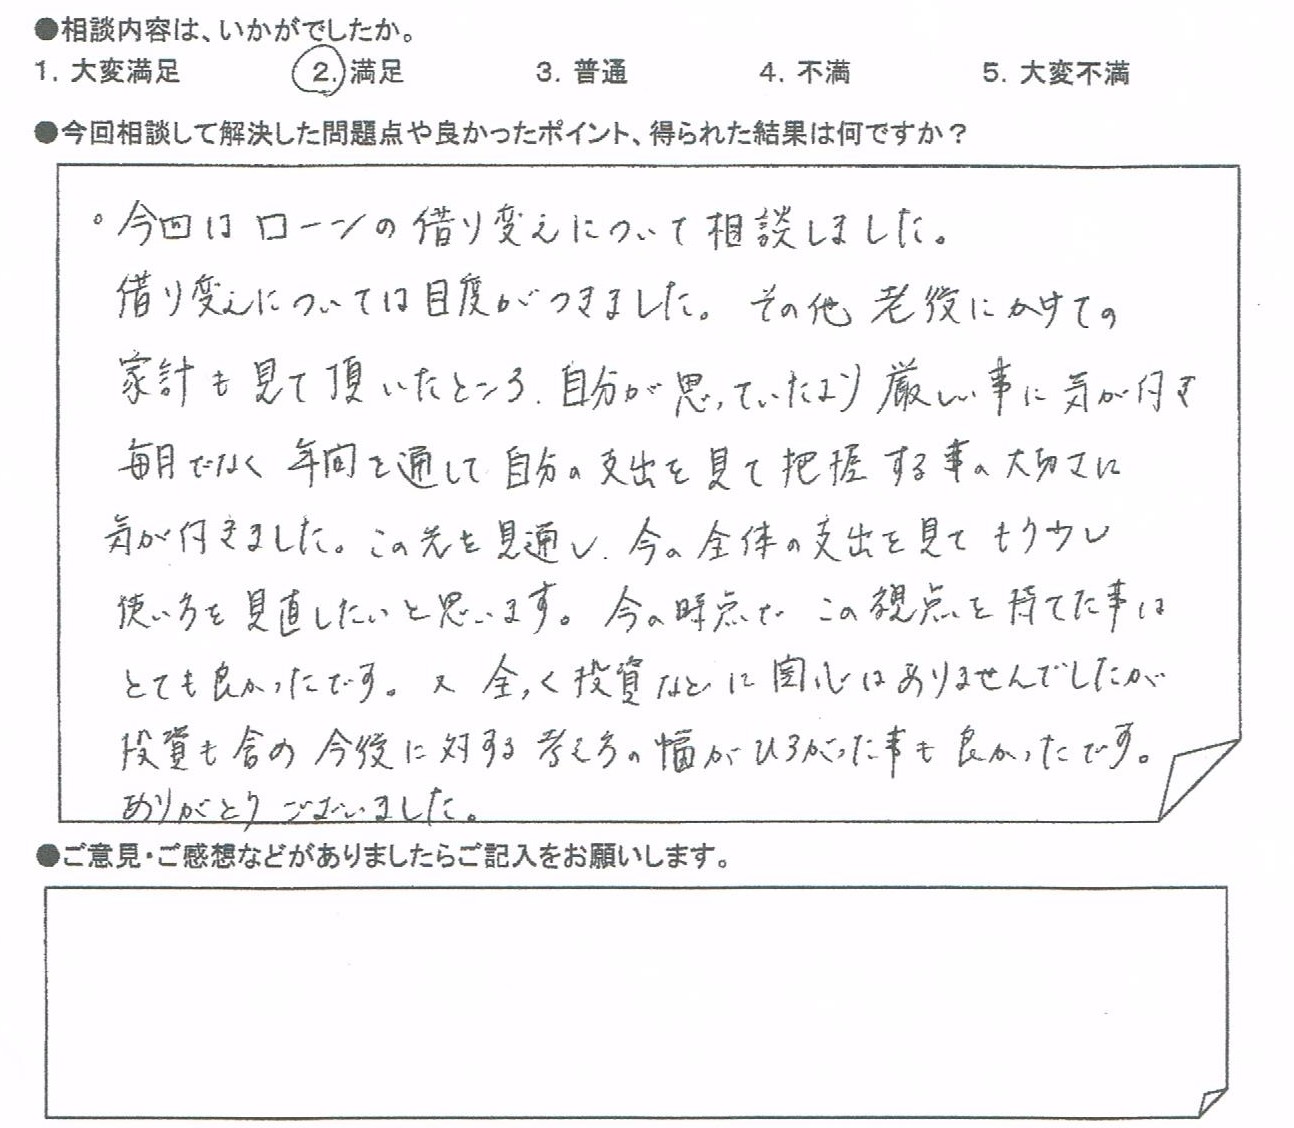 ●相談内容は、いかがでしたか。
1. 大変満足 2. 満足 3. 普通 4. 不満 5. 大変不満
●今回相談して解決した問題点や良かったポイント、得られた結果は何ですか?
。今回はローンの借り変えについて相談しました。
借り変えについては目度がつきました。その他 老後にかけての
家計も見て頂いたところ、自分が思っていたより厳しい事に気が付き
毎月でなく 年間を通して自分の支出を見て把握する事の大切さに
気が付きました。この先を見通し、今の全体の支出を見てもう少し
使い方を見直したいと思います。今の時点でこの視点を持てた事は
とても良かったです。又 全く投資などに関心はありませんでしたが
投資も含め 今後に対する考え方の幅がひろがった事も良かったです。
ありがとうございました。
●ご意見・ご感想などがありましたらご記入をお願いします。